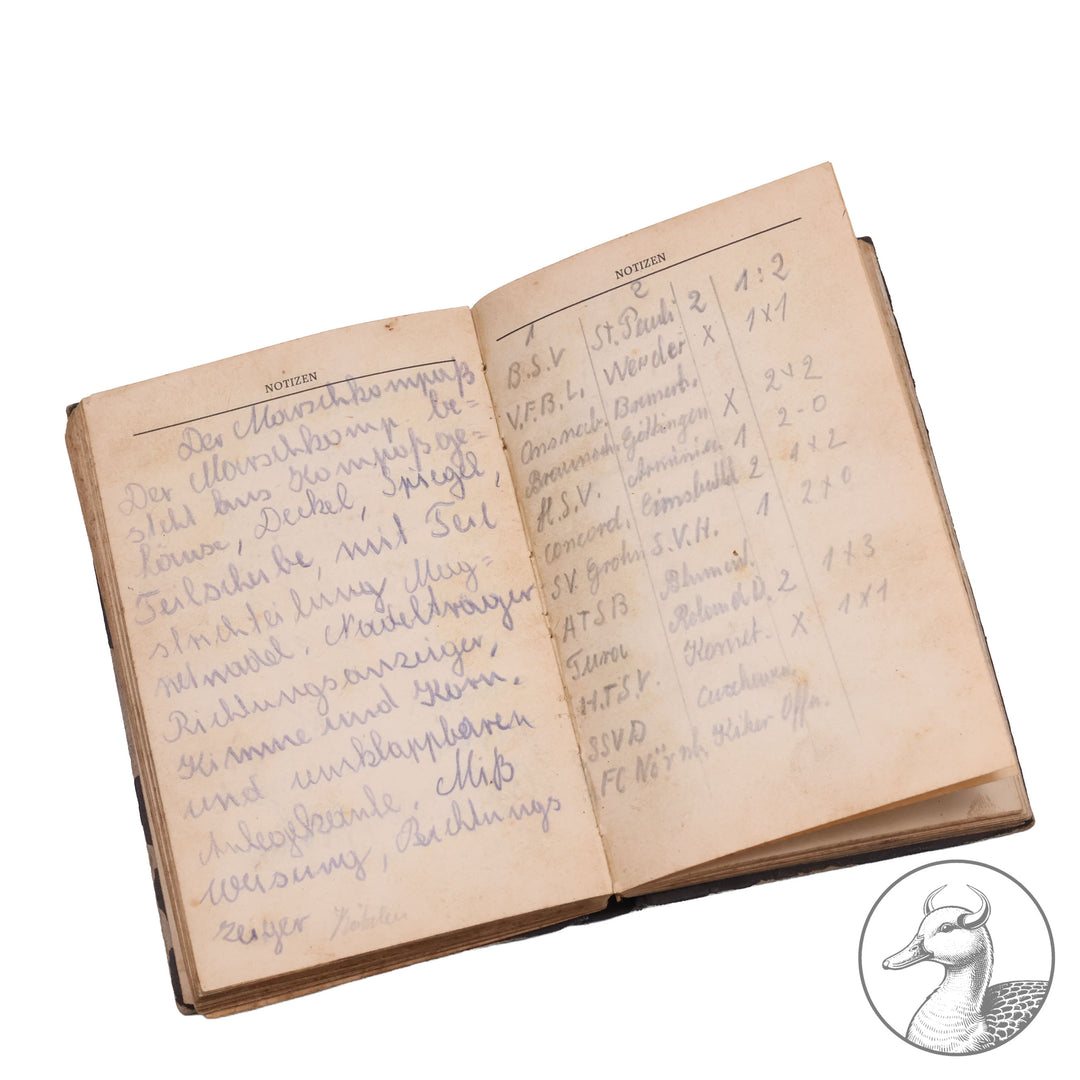 NOTIZEN
Der Marschkompaß
Der Marschkomp be=
steht aus Kompaßge=
häuse, Deckel, Spiegel,
Teilscheibe, mit Teil
strichteilung Mag=
netnadel, Nadelträger
Richtungsanzeiger,
Kimme und Korn.
und umklappbaren
Anlegekante. Miß
weisung, Richtungs
zeiger
NOTIZEN
1 2
B.S.V St. Pauli 2 1:2
V.F.B.L. Werder X 1x1
Osnab. Bremerh.
Braunsch. Göttingen X 2x2
H.S.V. Arminia 1 2-0
Concord. Eimsbüttel 2 1x2
SV. Grohn S.V.H. 1 2x0
ATSB Blument.
Tura Roland D. 2 1x3
H.T.S.V. Komet. X 1x1
SSVD Cuxhaven.
FC Nürnb. Kiker Offn.